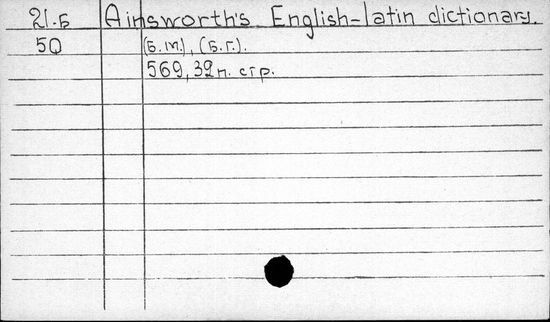 21.Б Ainsworth's English-latin dictionary.
50 (Б.м.), (Б.г.).
569, 32н. стр.